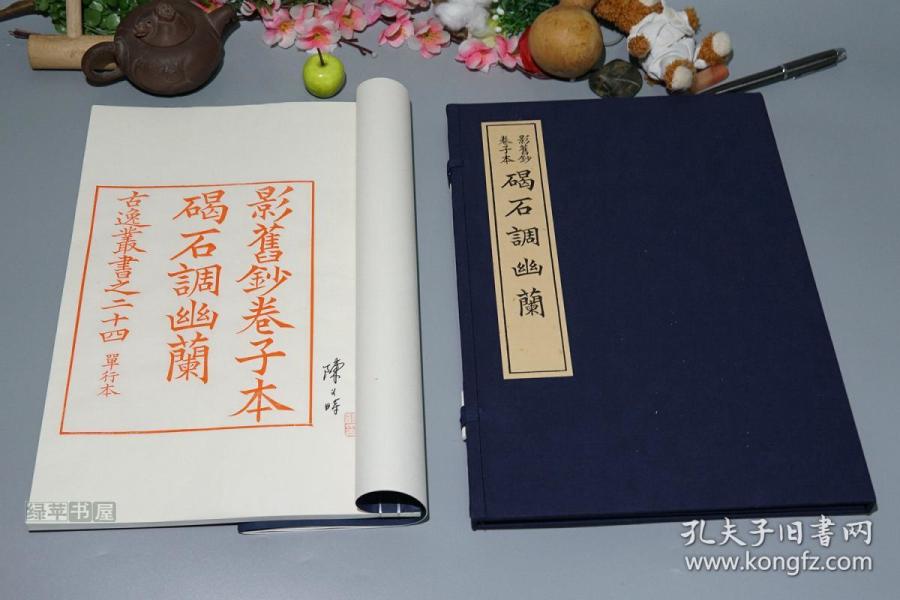 影舊鈔卷子本
碣石調幽蘭
古逸叢書之二十四 單行本
影舊鈔
卷子本
碣石調幽蘭
绿苹书屋
孔夫子旧书网
www.kongfz.com